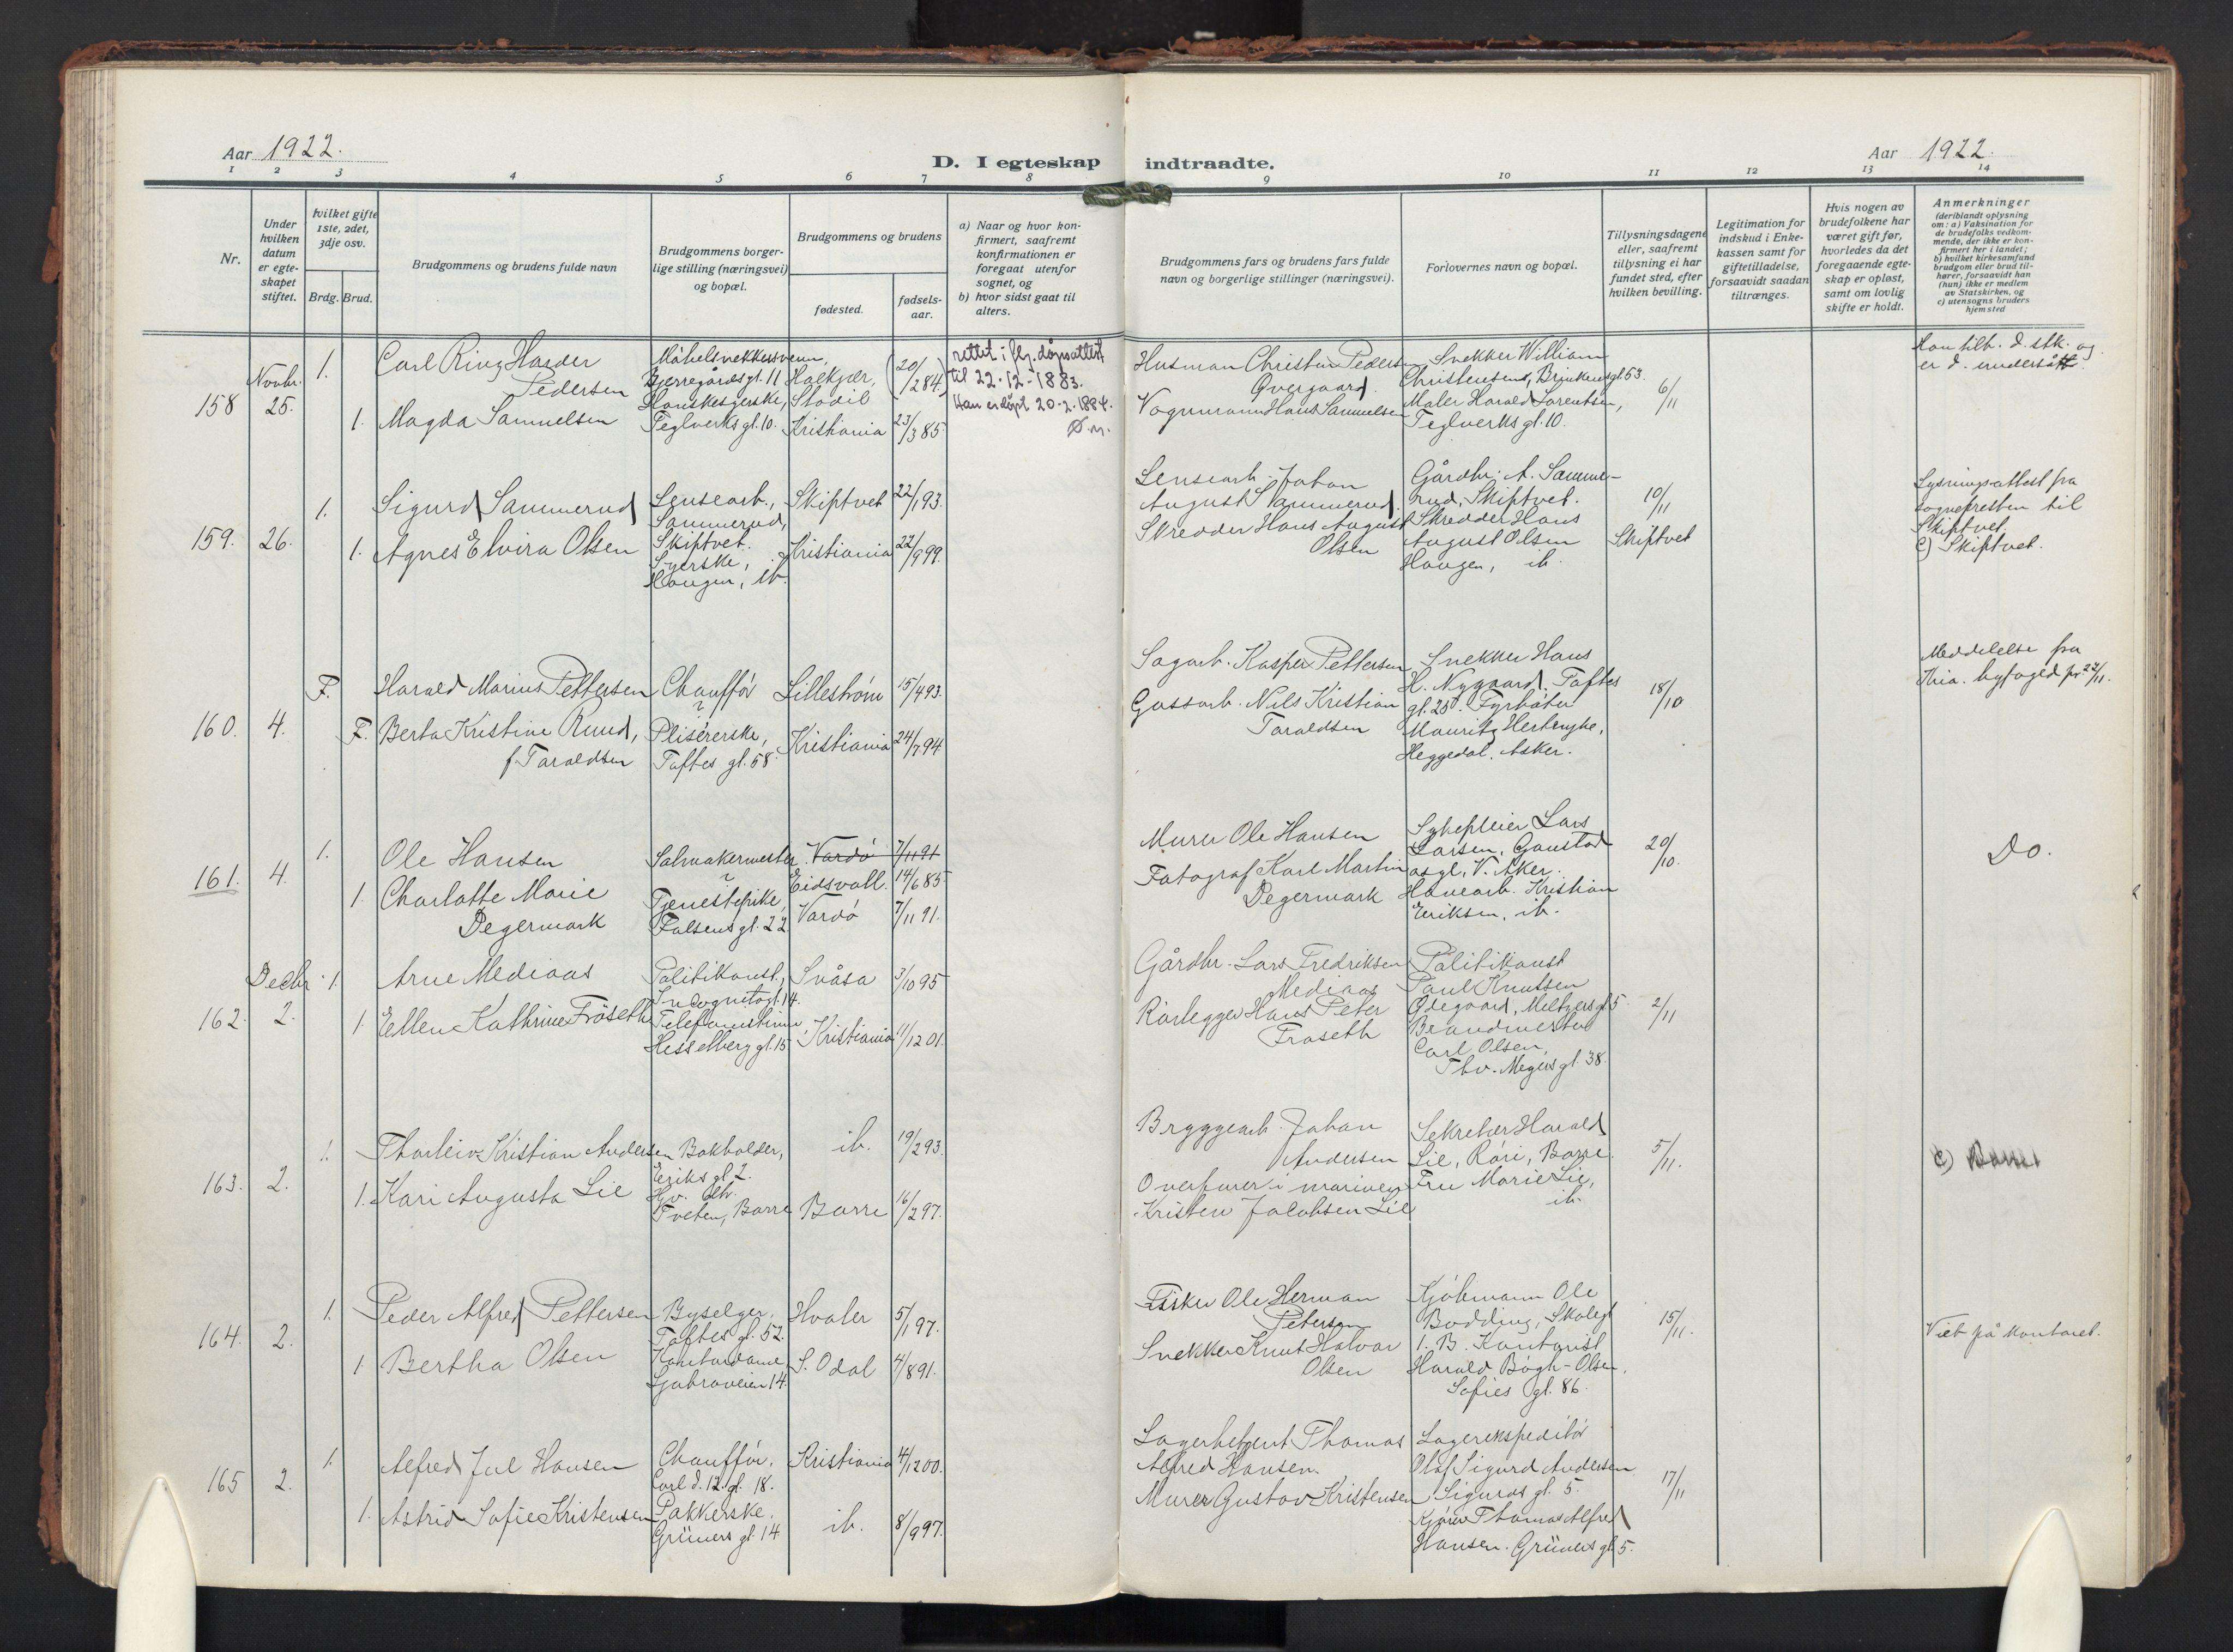 Aar 1922.
D. I egteskap indtraadte.
Aar 1922.
1 2 3 4 5 6 7 8 9 10 11 12 13 14
Nr.
Under hvilken datum er egteskapet stiftet.
hvilket gifte 1ste, 2det, 3dje osv.
Brdg. Brud.
Brudgommens og brudens fulde navn
Brudgommens borgerlige stilling (næringsvei) og bopæl.
Brudgommens og brudens
fødested.
fødselsaar.
a) Naar og hvor konfirmert, saafremt konfirmationen er foregaat utenfor sognet, og
b) hvor sidst gaat til alters.
Brudgommens fars og brudens fars fulde navn og borgerlige stillinger (næringsvei).
Forlovernes navn og bopæl.
Tillysningsdagene eller, saafremt tillysning ei har fundet sted, efter hvilken bevilling.
Legitimation for indskud i Enkekassen samt for giftetilladelse, forsaavidt saadan tiltrænges.
Hvis nogen av brudefolkene har været gift før, hvorledes da det foregaaende egteskap er opløst, samt om lovlig skifte er holdt.
Anmerkninger
(deriblandt oplysning om: a) Vaksination for de brudefolks vedkommende, der ikke er konfirmert her i landet;
b) hvilket kirkesamfund brudgom eller brud tilhører, forsaavidt han (hun) ikke er medlem av Statskirken, og
c) utensogns bruders hjemsted
158
Novbr. 25.
1.
Carl Ring Harder Pedersen
Möbelsnekkersvenn, Bjerregårds gt. 11
Halkjær, Stadil
(20/2 84)
rettet i flg. dåpsattest
til 22-12-1883.
Han er döpt 20-2-1884.
Husman Christen Pedersen
Overgaard.
Snekker William
Christensen, Brinkens gt. 53.
6/11
Han tilh. d. stk. og
er d. undersått.
1. Magda Samuelsen
Hanskesyerske,
Teglverks gt. 10.
Kristiania 23/3 85.
Vognmann Hans Samuelsen
Maler Harald Lorentsen,
Teglverks gt. 10.
159. 26.
1. Sigurd Sammerud
Lensearb.,
Sammerud,
Skiptvet.
Skiptvet 22/1 93.
Lensearb. Johan
August Sammerud.
Gårdbr. A. Sammerud, Skiptvet.
10/11
Skiptvet
Lysningsattest fra
sognepresten til
Skiptvet.
c) Skiptvet.
1. Agnes Elvira Olsen
Syerske,
Haugen, ib.
Kristiania 22/9 99.
Skredder Hans August
Olsen
Skredder Hans
August Olsen
Haugen, ib.
160. 4.
F. Harald Marius Pettersen
Chaufför
Lilleström 15/4 93.
Sagarb. Kasper Pettersen
Snekker Hans
H. Nygaard. Toftes
gt. 25.
18/10
Meddelelse fra
Kria. byfoged pr. 27/11.
F. Berta Kristine Ruud,
f. Taraldsen
Plisérerske,
Toftes gt. 58.
Kristiania 24/7 94
Gassarb. Nils Kristian
Taraldsen
Fyrböter
Mauritz Hertenyke,
Heggedal. Asker.
161. 4.
1. Ole Hansen
Salmakermester
Vardö 7/11 91
Eidsvoll. 14/6 85.
Murer Ole Hansen
Sykepleier Lars
Larsen, Gaustad
asyl, V. Aker.
20/10.
Do.
1. Charlotte Marie
Degermark
Tjenestepike,
Falsens gt. 22.
Vardö 7/11 91.
Fotograf Karl Martin
Degermark
Havearb. Kristian
Eriksen, ib.
162. Decbr. 2.
1. Arne Mediaas
Politikonst.,
Incognitogt. 14.
Snåsa 3/10 95
Gårdbr. Lars Fredriksen
Mediaas
Politikonst
Paul Knutsen
Ödegaard, Meltzers gt 5.
2/11
1. Ellen Kathrine Fröseth
Telefonistinne,
Hesselberg gt. 15
Kristiania 11/12 01.
Rörlegger Hans Peter
Fröseth
Brandmester
Carl Olsen,
Thv. Meyers gt. 38.
163. 2.
1. Thorleiv Kristian Andersen
Bokholder,
Eriks gt 2.
ib. 19/2 93.
Bryggearb. Johan
Andersen
Sekretær Harald
Lie, Röri, Borre.
5/11.
1. Kari Augusta Lie
Tveten, Borre
Borre 16/2 97.
i marinen
Kristen Jakobsen Lie
Fru Marie Lie,
ib.
164. 2.
1. Peder Alfred Pettersen
Byselger.
Toftes gt. 52.
Hvaler 5/1 97.
Fisker Ole Herman
Petersen
Kjöbmann Ole
Bodding, Skolegt
1. B.
15/11.
Viet på kontoret.
1 Bertha Olsen
Kontordame,
Ljabroveien 14.
S. Odal 4/8 91.
Snekker Knut Halvor
Olsen
Kontorist
Harald Bögh-Olsen.
Sofies gt. 86.
165 2.
1. Alfred Jul Hansen
Chaufför.
Carl d. 12. gt. 18.
Kristiania 4/12 00.
Lagerbetjent Thomas
Alfred Hansen.
Lagerekspeditör
Olaf Sigurd Andersen
Sigurds gt. 5.
17/11
1. Astrid Sofie Kristensen
Pakkerske.
Grüners gt 14
ib. 8/9 97.
Murer Gustav Kristensen
Kjörer Thomas Alfred
Hansen. Grüners gt 5.